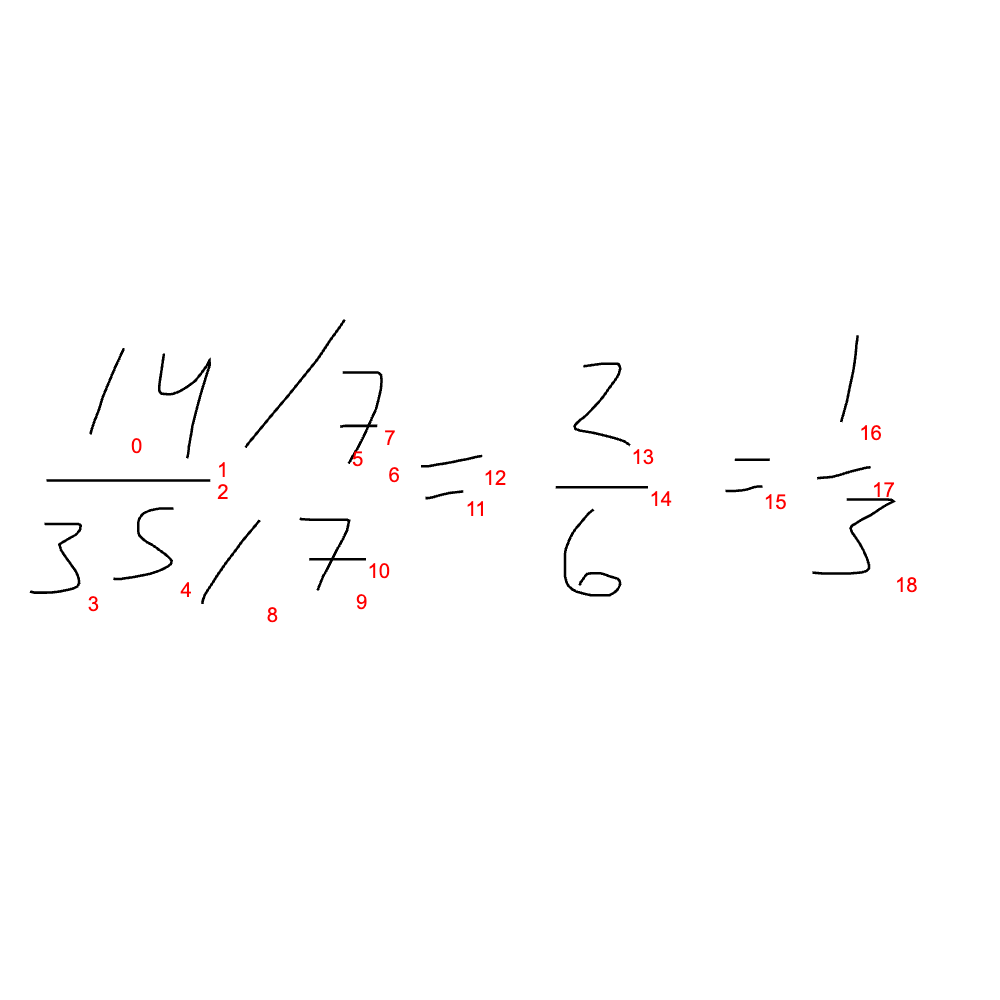 14/7 2 1
35/7 = 6 = 3
0 1 2 3 4 5 6 7 8 9 10 11 12 13 14 15 16 17 18